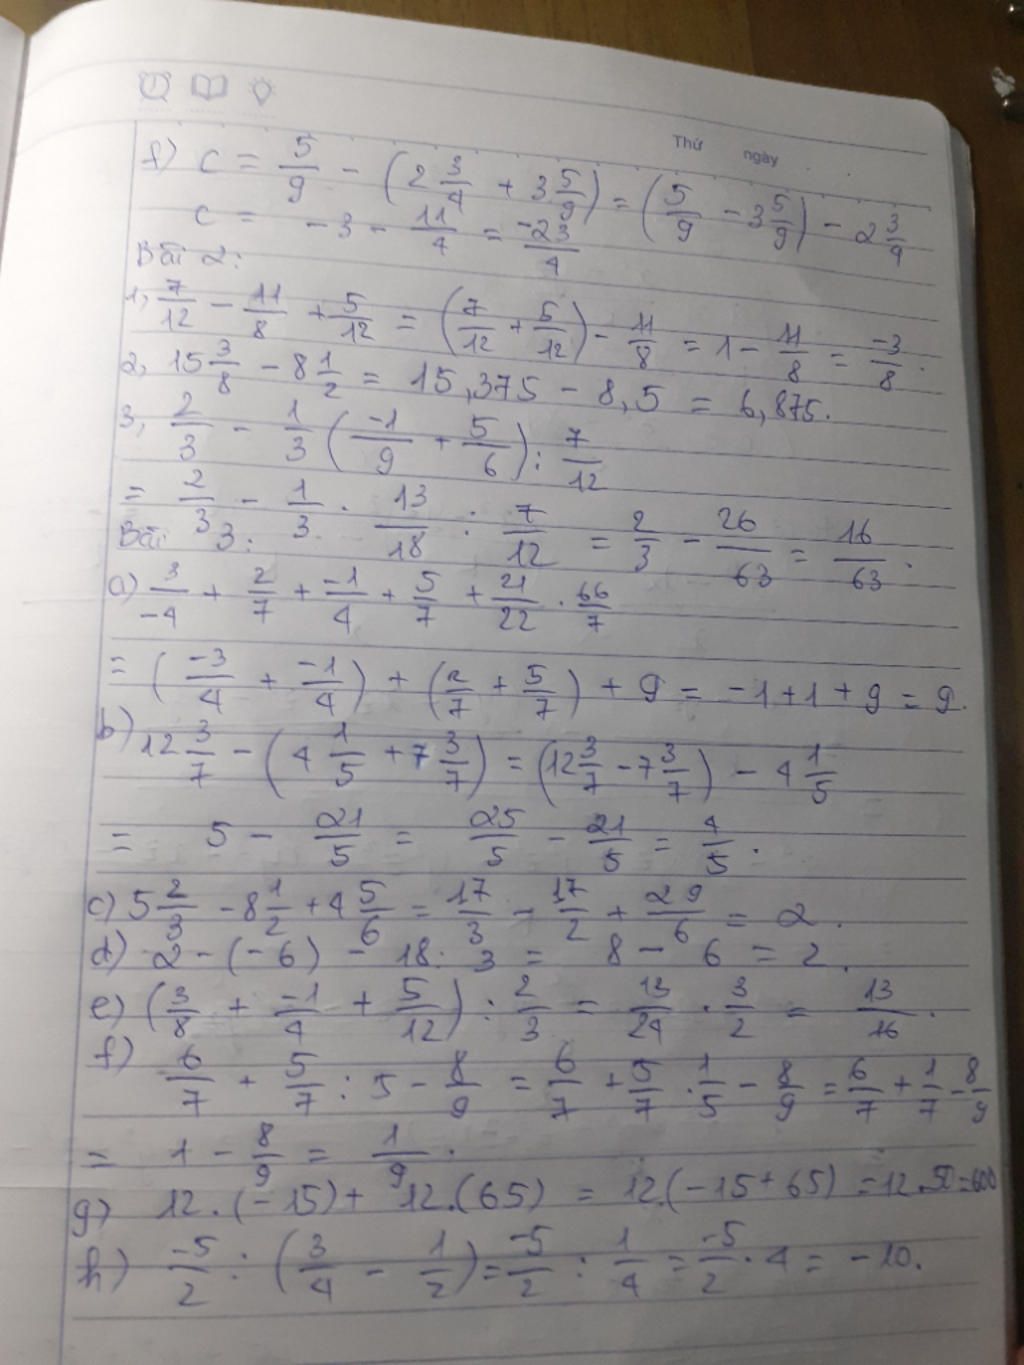 Thứ ngày
f) C = 5/9 - (2 3/4 + 3 5/9) = (5/9 - 3 5/9) - 2 3/4
C = -3 - 11/4 = -23/4
Bài 2:
1, 7/12 - 11/8 + 5/12 = (7/12 + 5/12) - 11/8 = 1 - 11/8 = -3/8.
2, 15 3/8 - 8 1/2 = 15,375 - 8,5 = 6,875.
3, 2/3 - 1/3 (-1/9 + 5/6) : 7/12
= 2/3 - 1/3 . 13/18 : 7/12 = 2/3 - 26/63 = 16/63.
Bài 3:
a) 3/-4 + 2/7 + -1/4 + 5/7 + 21/22 . 66/7
= (-3/4 + -1/4) + (2/7 + 5/7) + 9 = -1 + 1 + 9 = 9.
b) 12 3/7 - (4 1/5 + 7 3/7) = (12 3/7 - 7 3/7) - 4 1/5
= 5 - 21/5 = 25/5 - 21/5 = 4/5.
c) 5 2/3 - 8 1/2 + 4 5/6 = 17/3 - 17/2 + 29/6 = 2.
d) 2 - (-6) - 18 : 3 = 8 - 6 = 2.
e) (3/8 + -1/4 + 5/12) : 2/3 = 13/24 . 3/2 = 13/16.
f)
6/7 + 5/7 : 5 - 8/9 = 6/7 + 5/7 . 1/5 - 8/9 = 6/7 + 1/7 - 8/9
= 1 - 8/9 = 1/9.
g) 12 . (-15) + 12 . (65) = 12 . (-15 + 65) = 12 . 50 = 600
h) -5/2 : (3/4 - 1/2) = -5/2 : 1/4 = -5/2 . 4 = -10.